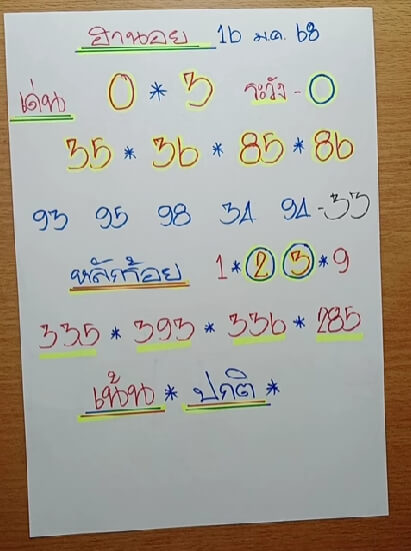 ฮานอย 16 ม.ค. 68
เด่น 0 * 3 ระวัง - 0
35 * 36 * 85 * 86
93 95 98 34 94 - 33
หลักร้อย 1 * 2 3 * 9
335 * 393 * 336 * 285
เน้น * ปกติ *